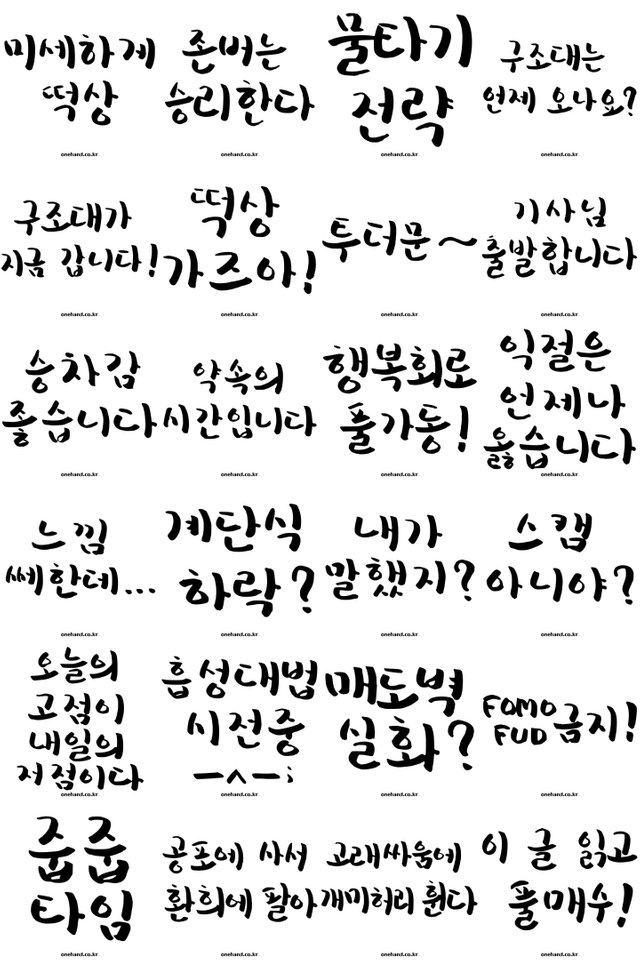 미세하게
떡상
onehand.co.kr
존버는
승리한다
onehand.co.kr
물타기
전략
onehand.co.kr
구조대는
언제 오나요?
onehand.co.kr
구조대가
지금 갑니다!
onehand.co.kr
떡상
가즈아!
onehand.co.kr
투더문~
onehand.co.kr
기사님
출발합니다
onehand.co.kr
승차감
좋습니다
onehand.co.kr
약속의
시간입니다
onehand.co.kr
행복회로
풀가동!
onehand.co.kr
익절은
언제나
옳습니다
onehand.co.kr
느낌
쎄한데...
onehand.co.kr
계단식
하락?
onehand.co.kr
내가
말했지?
onehand.co.kr
스캠
아니야?
onehand.co.kr
오늘의
고점이
내일의
저점이다
onehand.co.kr
흡성대법
시전중
ㅡㅅㅡ;
onehand.co.kr
매도벽
실화?
onehand.co.kr
FOMO
FUD 금지!
onehand.co.kr
줍줍
타임
onehand.co.kr
공포에 사서
환희에 팔아
onehand.co.kr
고래싸움에
개미허리 휜다
onehand.co.kr
이 글 읽고
풀매수!
onehand.co.kr